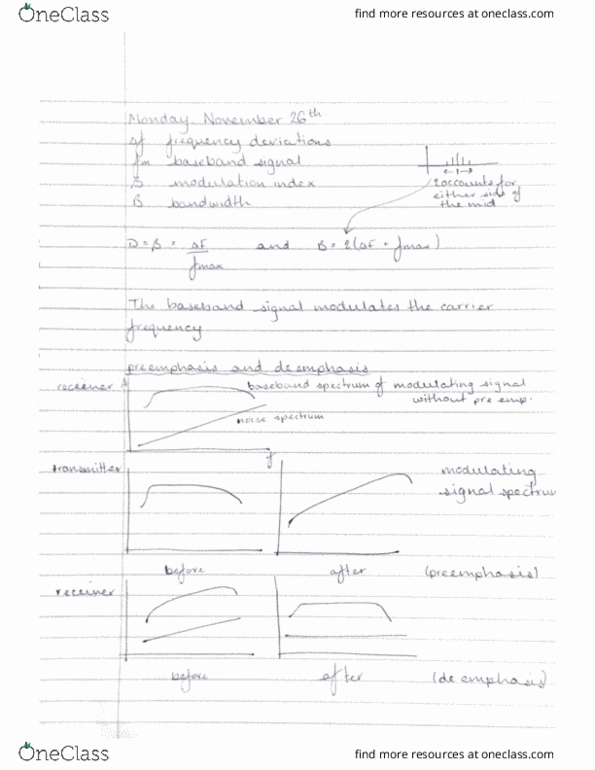 OneClass
find more resources at oneclass.com
Monday, November 26th
Δf frequency deviations
fm baseband signal
β modulation index
B bandwidth
2 accounts for
either side of
the mid
D = β = ΔF / fmax and B = 2(ΔF + fmax)
The baseband signal modulates the carrier
frequency
preemphasis and deemphasis
reciener A
baseband spectrum of modulating signal
without pre emp.
noise spectrum
f
transmitter
modulating
signal spectrum
before after (preemphasis)
reciener
before after (de emphasis)
OneClass
find more resources at oneclass.com